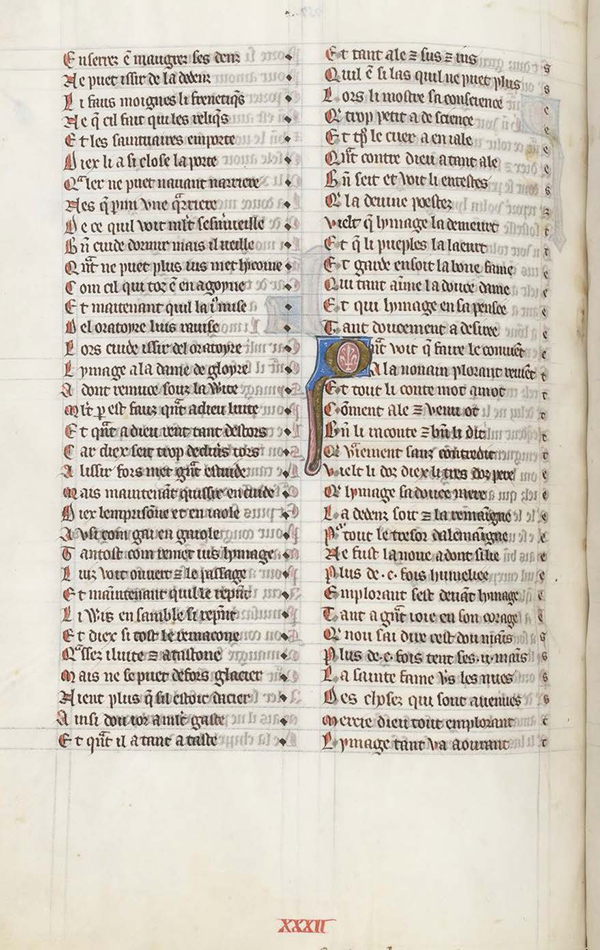 E nserrez ē maugrez ses denz
N e puet issir de la dedenz
L i faus moignes li freneticꝗs
N e q̄ cil fait qui les reliq̄s
E t les saintuaires emporte
D iex li a si close la porte
Q ler ne puet nauant narriere
N es q̄ p̄mi vne q̄rriere
D e ce quil voit ml't
B n̄ cuide dormir mais il ueille
Q nt ne puet plus ius met lycoine
C om cil qui tot ē en agonye
E t maintenant quil la ius mise
D el oratoyre luis rauise
L ors cuide issir del oratoyre
L ymage a la dame de gloyre
A dont remuce souz la
ml't p est faus qnt a dieu luite
E t qnt a dieu tent tant destors
C ar diex seit trop
A lissir fors met gnt estuide
M ais maintenant en cuide
D iex lemprisone et en iaole
A usi com gai en gaiole
T antost com remet ius lymage
L uis voit ouuert ⁊ le passage
E t maintenant quil le reprit
L i wis en samble si reprit
E t diex si tost le remacone
Q ssez iluite ⁊ a tastone
M ais ne se puet defors glacier
N ient plus q̄ sil estoit dacier
A insi dou tor a ml't gaste
E t qnt il a tant a taste
E t tant ale ⁊ sus ⁊ ius
Q uil ē si las quil ne puet plus
L ors li mostre sa conscience
Q trop petit a de science
E t le cuer a en iale
Q nt contre dieu a tant ale
B n̄ seit et voit li entestes
Q la deuine poestez
vielt q̄ lymage la demeurt
E t q̄ li pueples la laeurt
E t garde en soit la bone fame
Q ui tant aime la douce dame
E t qui lymage en sa pensee
T ant doucement a desiree
Q nt voit q̄ faire le couuēt
A la nonain plorant reuiēt
E t tout li conte mot a mot
C ōment ale ⁊ venu ot
B n̄ li raconte ⁊ bn̄ li dit
Q vraiement sanz contredit
vielt li doz diex li tres doz pere
Q lymage sa douce mere
L a dedenz soit ⁊ la remaigne
P tout le tresor dalemaigne
N e fust la none a dont si lie
P lus de .c. fois humelie
E mplorant sest deuāt lymage
T ant a gnt ioie en son corage
Q nou sai dire cest dou mains
P lus de .c. fois tent ses .ii. mains
L a sainte fame vs les nues
D es elyses qui sont auenues
mercie dieu tout emplorant
L ymage tant va aourant
XXXII